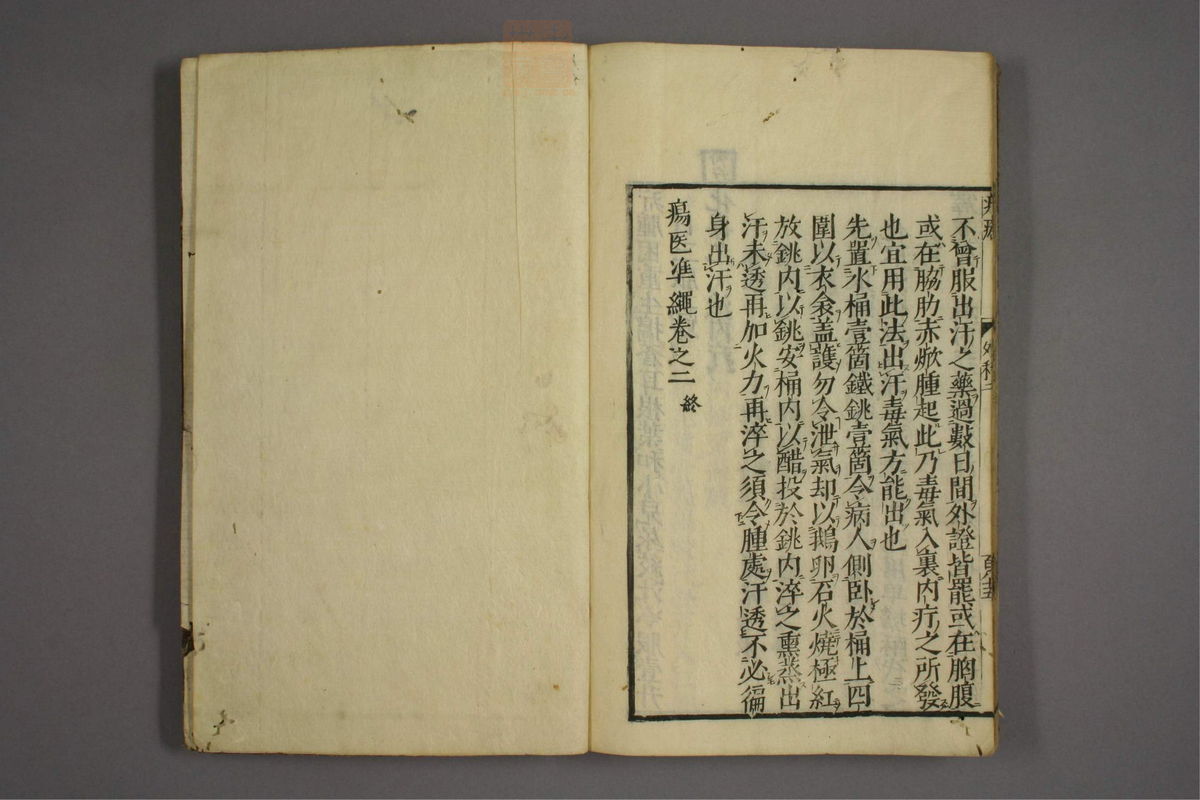 不曾服出汗之藥過數日間外證皆罷或在胸腹
或在脇肋赤焮腫起此乃毒氣入裏内疔之所發
也宜用此法出汗毒氣方能出也
先置水桶壹箇鐵銚壹箇令病人側卧於桶上四
圍以衣衾盖護勿令泄氣却以鵝卵石火燒極紅
放銚内以銚安桶内以醋投於銚内淬之熏蒸出
汗未透再加火力再淬之須令腫處汗透不必徧
身出汗也
瘍医準繩卷之二 終